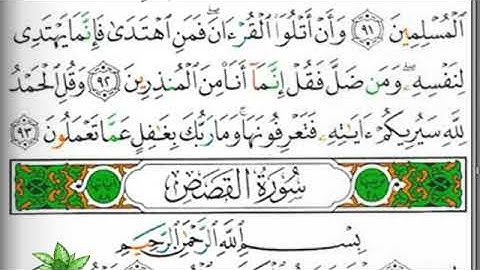 ٱلْمُسْلِمِينَ ۝٩١ وَأَنْ أَتْلُوَا۟ ٱلْقُرْءَانَ ۖ فَمَنِ ٱهْتَدَىٰ فَإِنَّمَا يَهْتَدِى
لِنَفْسِهِۦ ۖ وَمَن ضَلَّ فَقُلْ إِنَّمَآ أَنَا۠ مِنَ ٱلْمُنذِرِينَ ۝٩٢ وَقُلِ ٱلْحَمْدُ
لِلَّهِ سَيُرِيكُمْ ءَايَٰتِهِۦ فَتَعْرِفُونَهَا ۚ وَمَا رَبُّكَ بِغَٰفِلٍ عَمَّا تَعْمَلُونَ ۝٩٣
سُورَةُ القَصَصِ
بِسْمِ ٱللَّهِ ٱلرَّحْمَٰنِ ٱلرَّحِيمِ